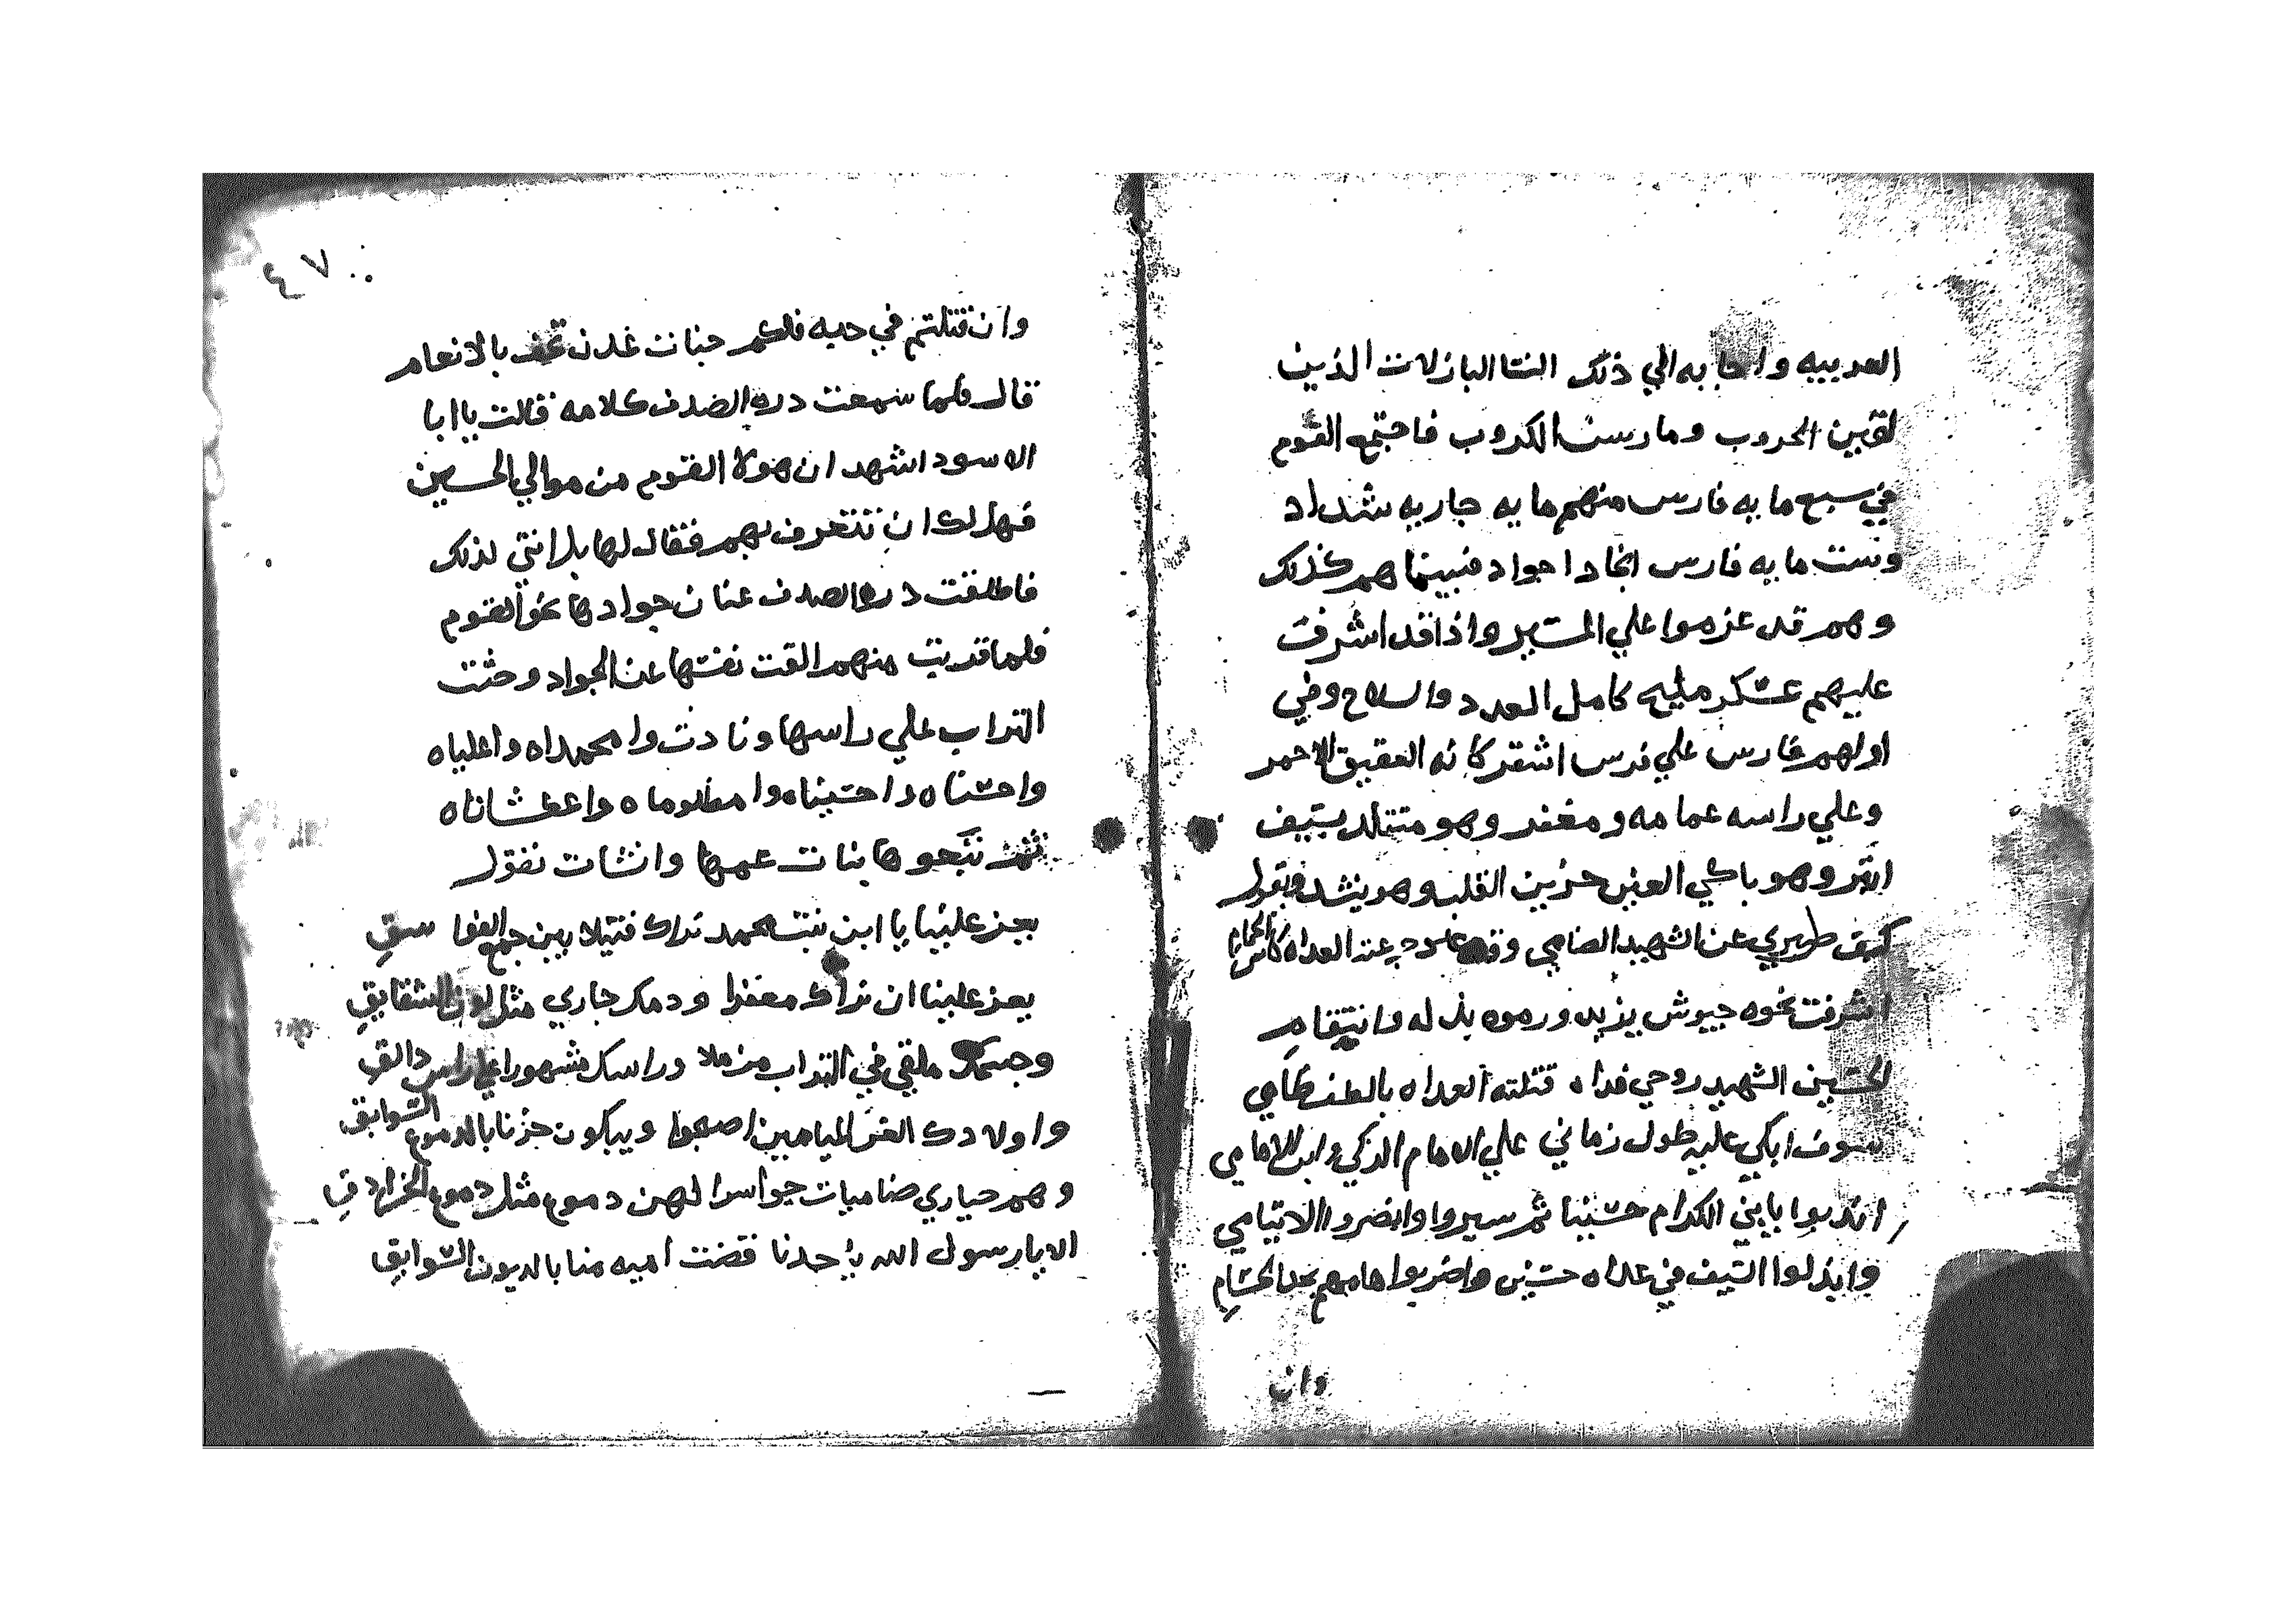 العربيه واجابه الي ذلك النسا البازلات الذين
لقين الحروب ومارسن الكروب فاجتمع القوم
في سبع مايه فارس منهم مايه جاريه شداد
وست مايه فارس انجادا جواد فبينما هم كذلك
وهم قد عزموا علي المسير واذا قد اشرفت
عليهم عسكر مليح كامل العدد والسلاح وفي
اولهم فارس علي فرس اشقر كانه العقيق الاحمر
وعلي راسه عمامه ومغفر وهو متقلد بسيف
ابتر وهو باكي العين حزين القلب وهو ينشد ويقول
كيف صبري عن الشهيد الضامي عند العداه كاس الحمام
اشرفت نحوه جيوش يزيد ورموه بذله وانتقام
لحسين الشهيد روحي فداه قتلته العداه بالطف ظامي
سوف ابكي عليه طول زماني علي الامام الزكي وابن الامامي
اندبوا يابني الكرام حسينا ثم سيروا وانضروا الايتامي
وابذلوا السيف في عداه حسين واضربوا هامهم بحد الحسام
وان
٤٧
وان قتلتم في حبه فلكم جنات عدن تحف بالانعام
قال فلما سمعت دره الصدف كلامه قالت يا ابا
الاسود اشهد ان هولا القوم من موالي الحسين
فهل لك ان تتعرف بهم فقال لها بل انتي لذلك
فاطلقت دره الصدف عنان جوادها نحو القوم
فلما قربت منهم القت نفسها عن الجواد وحثت
التراب علي راسها ونادت وا محمداه واعلياه
واحسناه واحسيناه وا مظلوماه واعطشاناه
ثم بنات عمها وانشات تقول
يعز علينا يا ابن بنت محمد نراك قتيلا بين جمع
يعز علينا ان نراك معفرا ودمك جاري مثل لون الشقايق
وجسمك ملقي في التراب مزملا وراسك مشهورا علي راس دالق
واولادك الغر الميامين اصبحوا ويبكون حزنا بالدموع السوابق
وهم حياري ضاميات حواسرا لهن دموع مثل دموع
الا يارسول الله يا جدنا قضت اميه منا بالديون السوابق